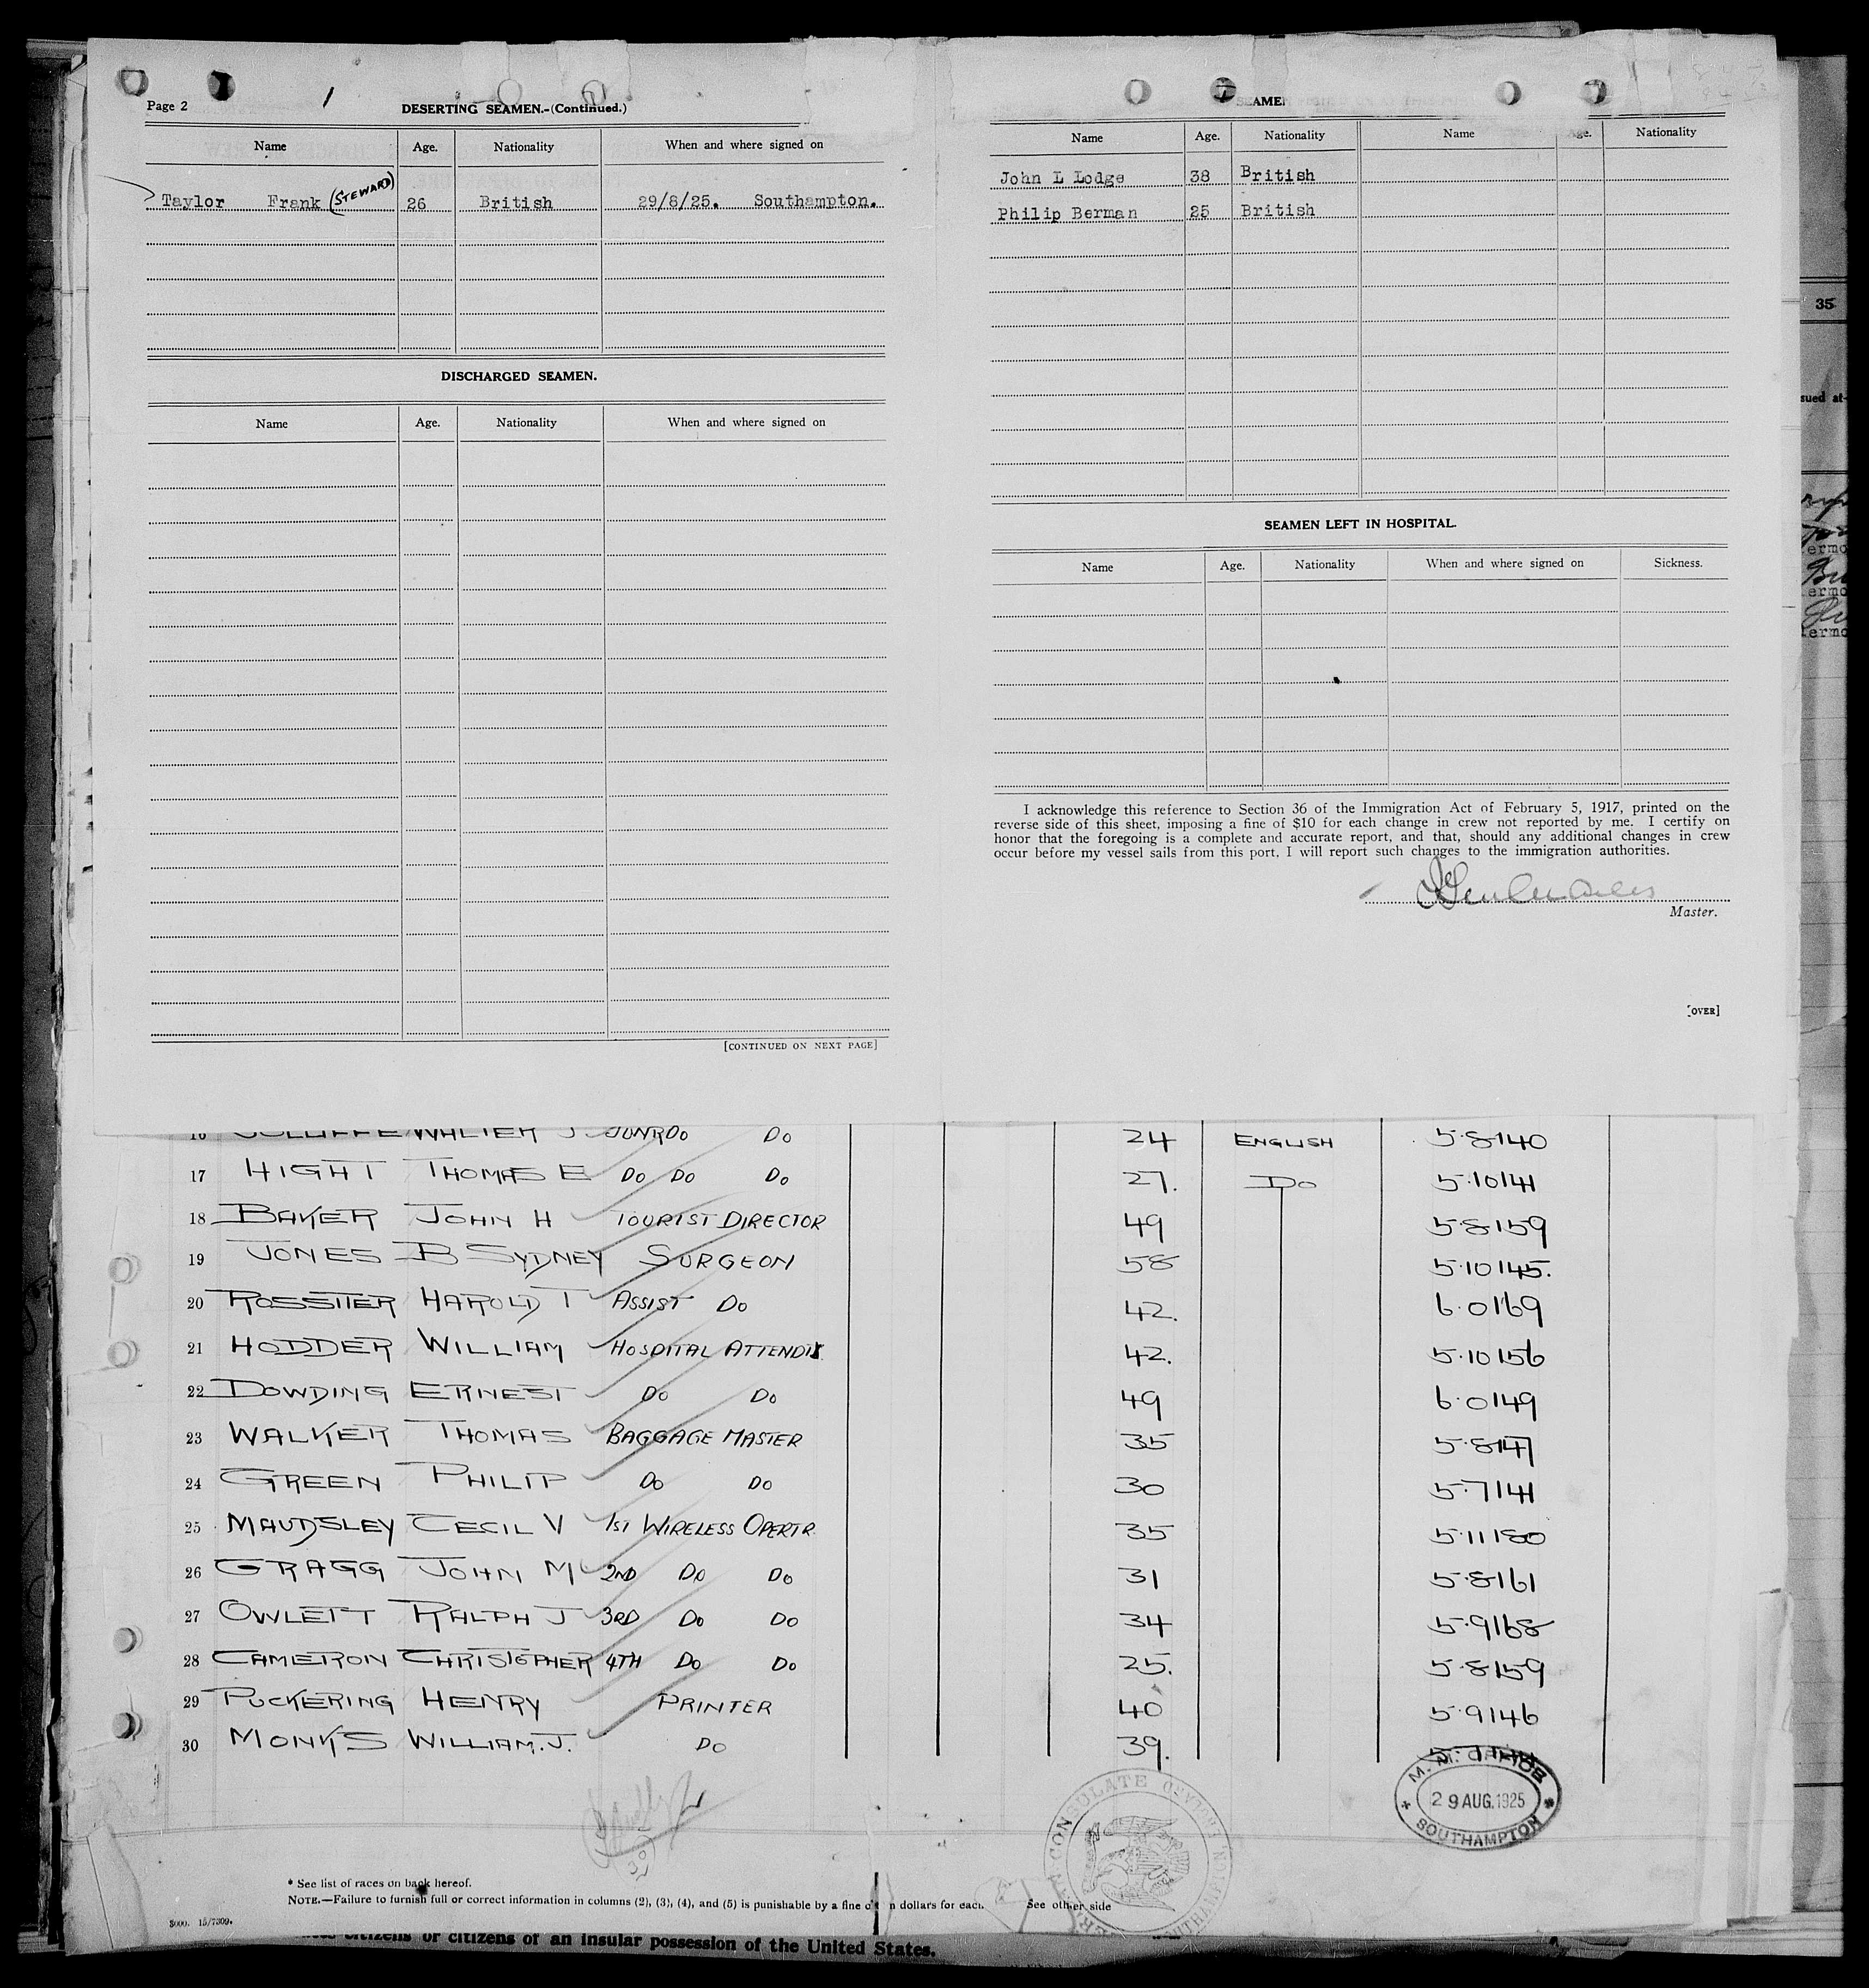 Page 2
DESERTING SEAMEN.-(Continued.)
Name Age. Nationality When and where signed on
Taylor Frank (STEWARD) 26 British 29/8/25. Southampton.
DISCHARGED SEAMEN.
Name Age. Nationality When and where signed on
[CONTINUED ON NEXT PAGE]
SEAMEN
Name Age. Nationality Name Age. Nationality
John L Lodge 38 British
Philip Berman 25 British
SEAMEN LEFT IN HOSPITAL.
Name Age. Nationality When and where signed on Sickness.
I acknowledge this reference to Section 36 of the Immigration Act of February 5, 1917, printed on the
reverse side of this sheet, imposing a fine of $10 for each change in crew not reported by me. I certify on
honor that the foregoing is a complete and accurate report, and that, should any additional changes in crew
occur before my vessel sails from this port, I will report such changes to the immigration authorities.
Master.
[OVER]
35
sued at-
16 WALTER J. JUNR DO DO 24 ENGLISH 5.8 140
17 HIGHT THOMAS E DO DO DO 27. DO 5.10 141
18 BAKER JOHN H TOURIST DIRECTOR 49 5.8 159
19 JONES B SYDNEY SURGEON 58 5.10 145.
20 ROSSITER HAROLD T ASSIST DO 42. 6.0 169
21 HODDER WILLIAM HOSPITAL ATTENDT 42. 5.10 156
22 DOWDING ERNEST DO DO 49 6.0 149
23 WALKER THOMAS BAGGAGE MASTER 35 5.8 147
24 GREEN PHILIP DO DO 30 5.7 141
25 MAUDSLEY CECIL V 1ST WIRELESS OPERTR. 35 5.11 180
26 GRAGG JOHN M 2ND DO DO 31 5.8 161
27 OWLETT RALPH J 3RD DO DO 34 5.9 168
28 CAMERON CHRISTOPHER 4TH DO DO 25. 5.8 159
29 PUCKERING HENRY PRINTER 40 5.9 146
30 MONKS WILLIAM.J. DO 39.
M. M. OFFICE
29 AUG. 1925
SOUTHAMPTON
CONSULATE
* See list of races on back hereof.
NOTE.—Failure to furnish full or correct information in columns (2), (3), (4), and (5) is punishable by a fine of n dollars for each See other side
5000. 15/7309.
citizens or citizens of an insular possession of the United States.